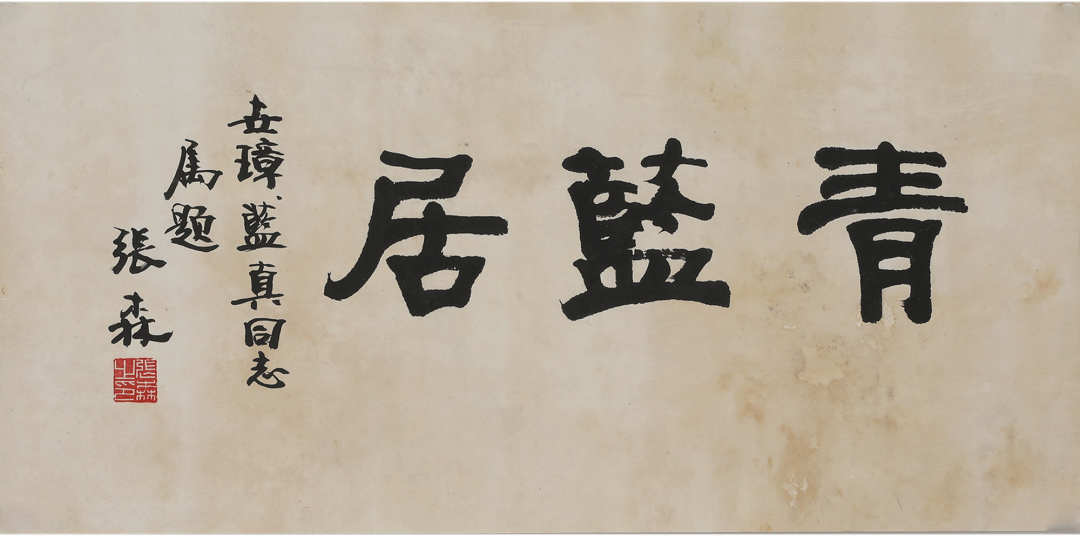 青藍居
世璋、藍真同志
属題
張森
張森之印